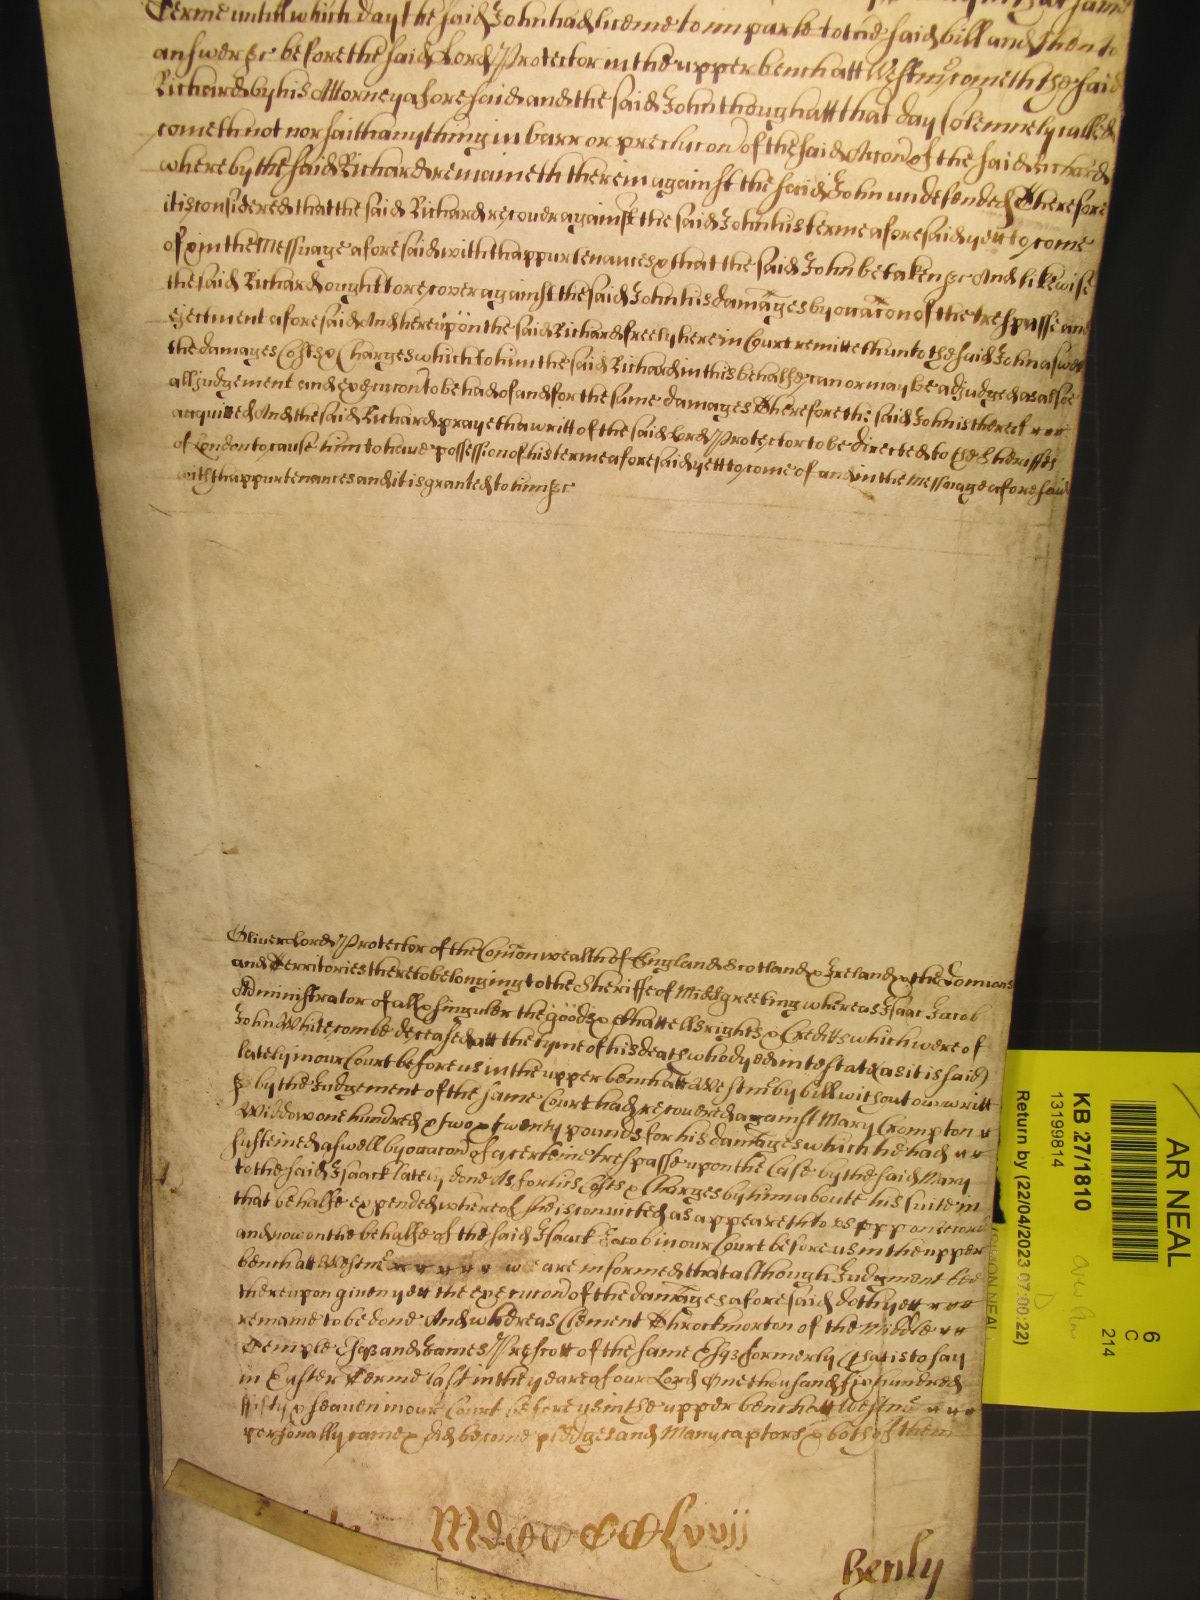 Terme untill which day the said John had licence to imparle to the said bill and then to
answer &c before the said Lord Protector in the upper bench att Westmr cometh the said
Richard by his Attorney aforesaid and the said John though att that day solemnely called
cometh not nor saith anything in barr or preclucon of the said Accon of the said Richard
whereby the said Richard remaineth therein against the said John undefended Therefore
it is considered that the said Richard recover against the said John his terme aforesaid yett to come
of & in the Messuage aforesaid with thappurtenances & that the said John be taken &c And likewise
the said Richard ought to recover against the said John his damages by occacon of the trespasse and
ejectment aforesaid And hereupon the said Richard freely here in Court remitteth unto the said John aswell
the damages Costs & Charges which to him the said Richard in this behalfe can or may be adjudged as alsoe
all judgement and execucon to be had of and for the same damages Therefore the said John is thereof
acquited And the said Richard prayeth a writt of the said Lord Protector to be directed to the Sheriffes
of London to cause him to have possession of his terme aforesaid yett to come of and in the Messuage aforesaid
with thappurtenances and it is granted to him &c
Oliver Lord Protector of the Comon wealth of England Scotland & Ireland & the Domions
and Territories thereto belonging to the Sheriffe of Midd greeting whereas Isaac Jacob
Administrator of all & singuler the goods & Chattells rights & Creditts which were of
John Whitecombe deceased att the tyme of his death who dyed intestate (as it is said)
lately in our Court before us in the upper bench att Westmr by bill without our writt
& by the Judgement of the same Court had recovered against Mary Crompton
Widdow one hundred & two & twenty pounds for his damages which he had
susteined aswell by occacon of a certeine trespasse upon the Case by the said Mary
to the said Isaack lately done As for his Costs & Charges by him aboute his suite in
that behalfe expended whereof shee is convicted as appeareth to us upp on record
and now on the behalfe of the said Isaack Jacob in our Court before us in the upper
bench att Westmr we are informed that although Judgment bee
thereupon given yett the execucon of the damages aforesaid doth yett
remaine to be done And whereas Clement Throckmorton of the Middle
Temple Esqr and James Prescott of the same Esqr formerly that is to say
in Easter Terme last in the yeare of our Lord One thousand six hundred
fifty & seaven in our Court before us in the upper bench att Westmr
personally came & did become pledges and Manucaptors & both of them
Henly
AR NEAL
6
C
214
KB 27/1810
13199814
Return by (22/04/2023 07:00:22)